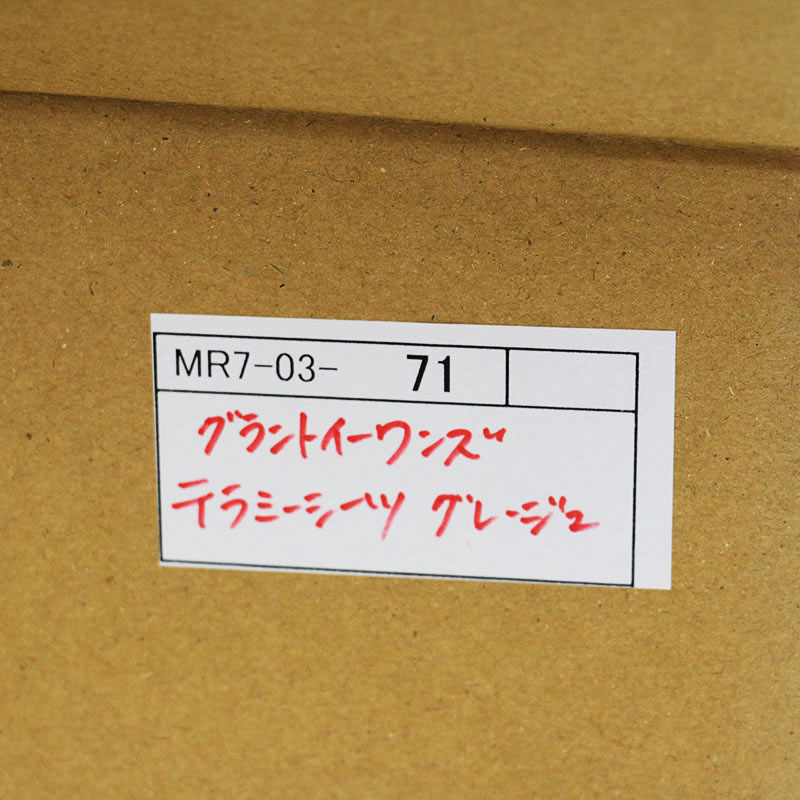 MR7-03- 71
グラントイーワンズ
テラミーシーツ グレージュ